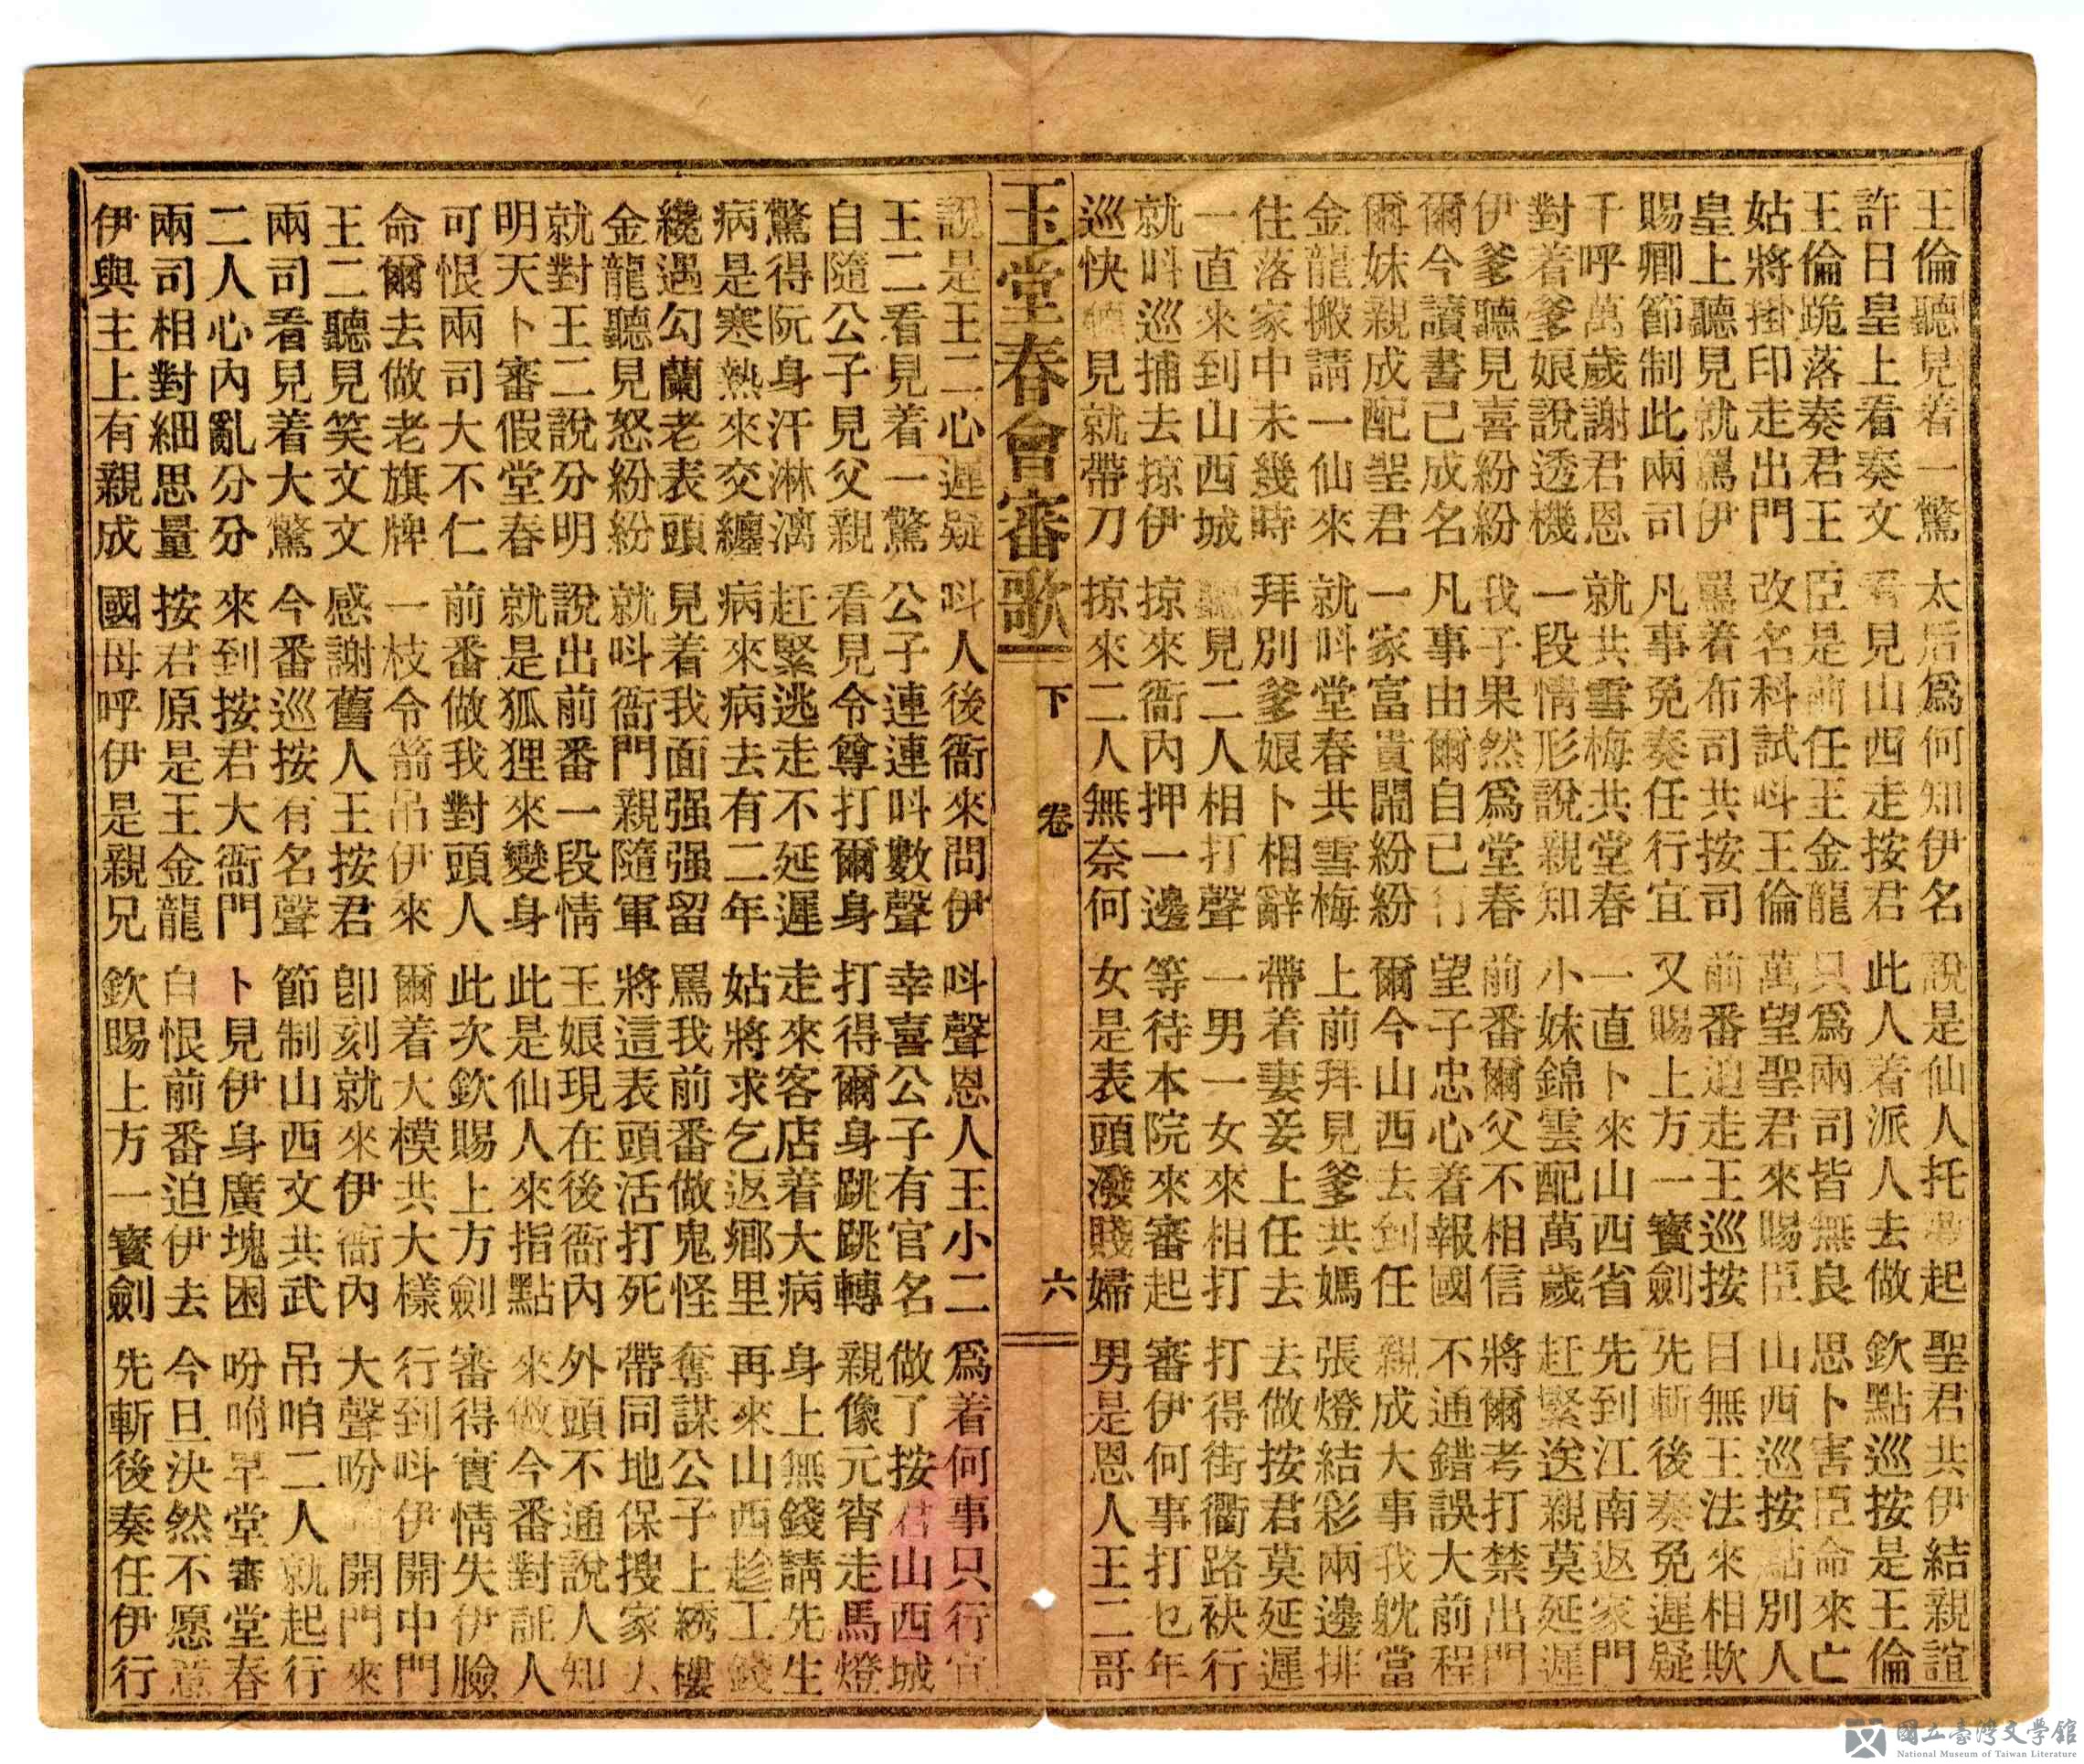 王倫聽見着一驚 太后爲何知伊名 說是仙人托夢起 聖君共伊結親誼
許日皇上看奏文 看見山西走按君 此人着派人去做 欽點巡按是王倫
王倫跪落奏君王 臣是前任王金龍 只爲兩司皆無良 思卜害臣命來亡
姑將掛印走出門 改名科試呌王倫 萬望聖君來賜臣 山西巡按點別人
皇上聽見就罵伊 罵着布司共按司 前番迫走王巡按 目無王法來相欺
賜卿節制此兩司 凡事免奏任行宜 又賜上方一寳劍 先斬後奏免遲疑
千呼萬歲謝君恩 就共雪梅共堂春 一直卜來山西省 先到江南返家門
對着爹娘說透機 一段情形說親知 小妹錦雲配萬歲 赶緊送親莫延遲
伊爹聽見喜紛紛 我子果然爲堂春 前番爾父不相信 將爾考打禁出門
爾今讀書已成名 凡事由爾自己行 望子忠心着報國 不通錯誤大前程
爾妹親成配聖君 一家富貴鬧紛紛 爾今山西去到任 親成大事我躭當
金龍搬請一仙來 就呌堂春共雪梅 上前拜見爹共媽 張燈結彩兩邊排
住落家中未幾時 拜別爹娘卜相辭 帶着妻妾上任去 去做按君莫延遲
一直來到山西城 聽見二人相打聲 一男一女來相打 打得街衢路袂行
就呌巡捕去掠伊 掠來衙內押一邊 等待本院來審起 審伊何事打乜年
巡快聽見就帶刀 掠來二人無奈何 女是表頭潑賤婦 男是恩人王二哥
玉堂春會審歌 下 卷 六
說是王二心遲疑 呌人後衙來問伊 呌聲恩人王小二 爲着何事只行宜
王二看見着一驚 公子連連呌數聲 幸喜公子有官名 做了按君山西城
自隨公子見父親 看見令尊打爾身 打得爾身跳跳轉 親像元宵走馬燈
驚得阮身汗淋漓 赶緊逃走不延遲 走來客店着大病 身上無錢請先生
病是寒熱來交纏 病來病去有二年 姑將求乞返鄉里 再來山西趁工錢
纔遇勾蘭老表頭 見着我面强强留 罵我前番做鬼怪 奪謀公子上綉樓
金龍聽見怒紛紛 就呌衙門親隨軍 將這表頭活打死 帶同地保搜家
就對王二說分明 說出前番一段情 玉娘現在後衙內 外頭不通說人知
明天卜審假堂春 就是狐狸來變身 此是仙人來指點 來做今番對証人
可恨兩司大不仁 前番做我對頭人 此次欽賜上方劍 審得實情失伊臉
命爾去做老旗牌 一枝令箭吊伊來 爾着大模共大樣 行到呌伊開中門
王二聽見笑文文 感謝舊人王按君 卽刻就來伊衙內 大聲吩 開門來
兩司看見着大驚 今番巡按有名聲 節制山西文共武 吊咱二人就起行
二人心內亂分分 來到按君大衙門 卜見伊身廣塊困 吩咐早堂審堂春
兩司相對細思量 按君原是王金龍 自恨前番迫伊去 今旦決然不愿意
伊與主上有親成 國母呼伊是親兄 欽賜上方一寳劍 先斬後奏任伊行
國立臺灣文學館
National Museum of Taiwan Literature